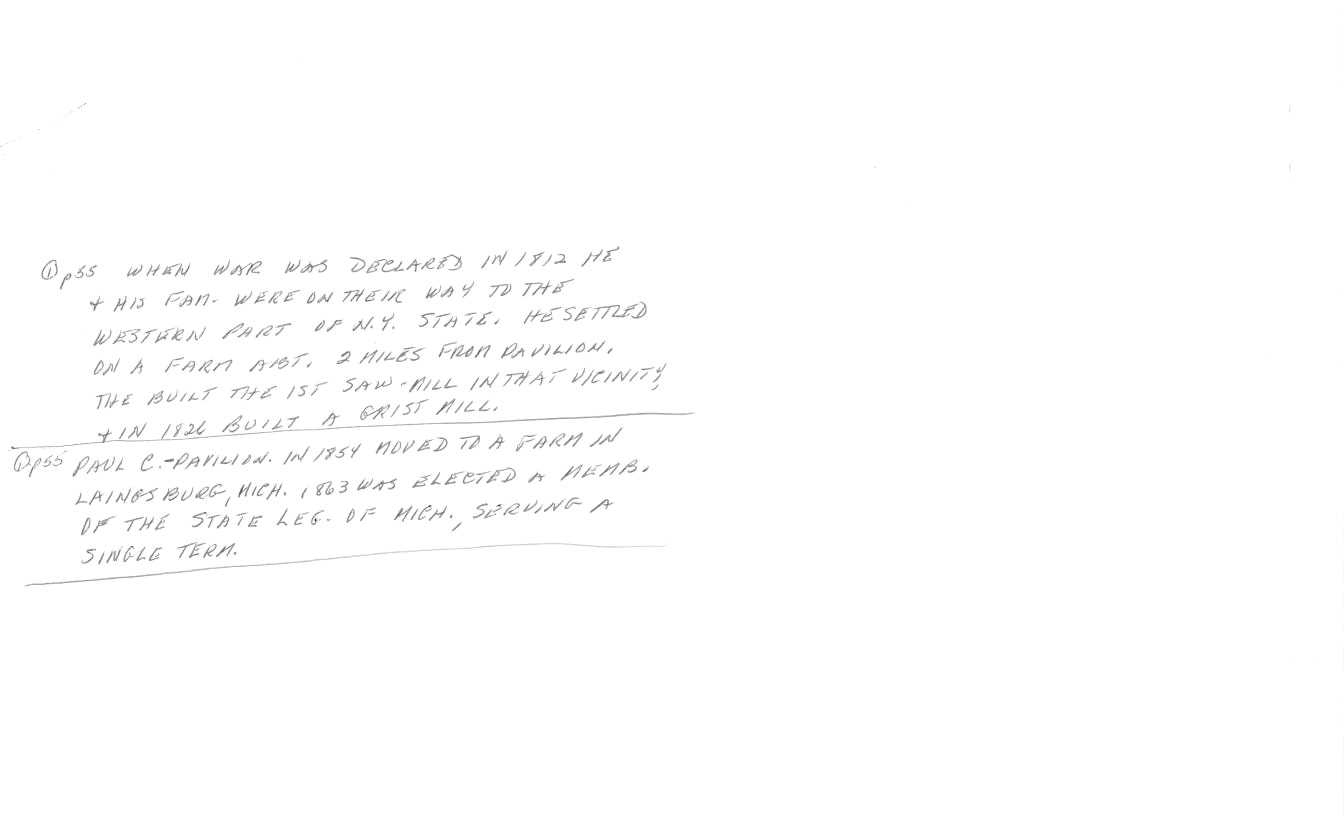 ① p55 WHEN WAR WAS DECLARED IN 1812 HE
+ HIS FAM. WERE ON THEIR WAY TO THE
WESTERN PART OF N.Y. STATE. HE SETTLED
ON A FARM ABT. 2 MILES FROM PAVILION.
THE BUILT THE 1ST SAW-MILL IN THAT VICINITY,
+ IN 1826 BUILT A GRIST MILL.
② p55 PAUL C.-PAVILION. IN 1854 MOVED TO A FARM IN
LAINGSBURG, MICH. 1863 WAS ELECTED A MEMB.
OF THE STATE LEG. OF MICH., SERVING A
SINGLE TERM.